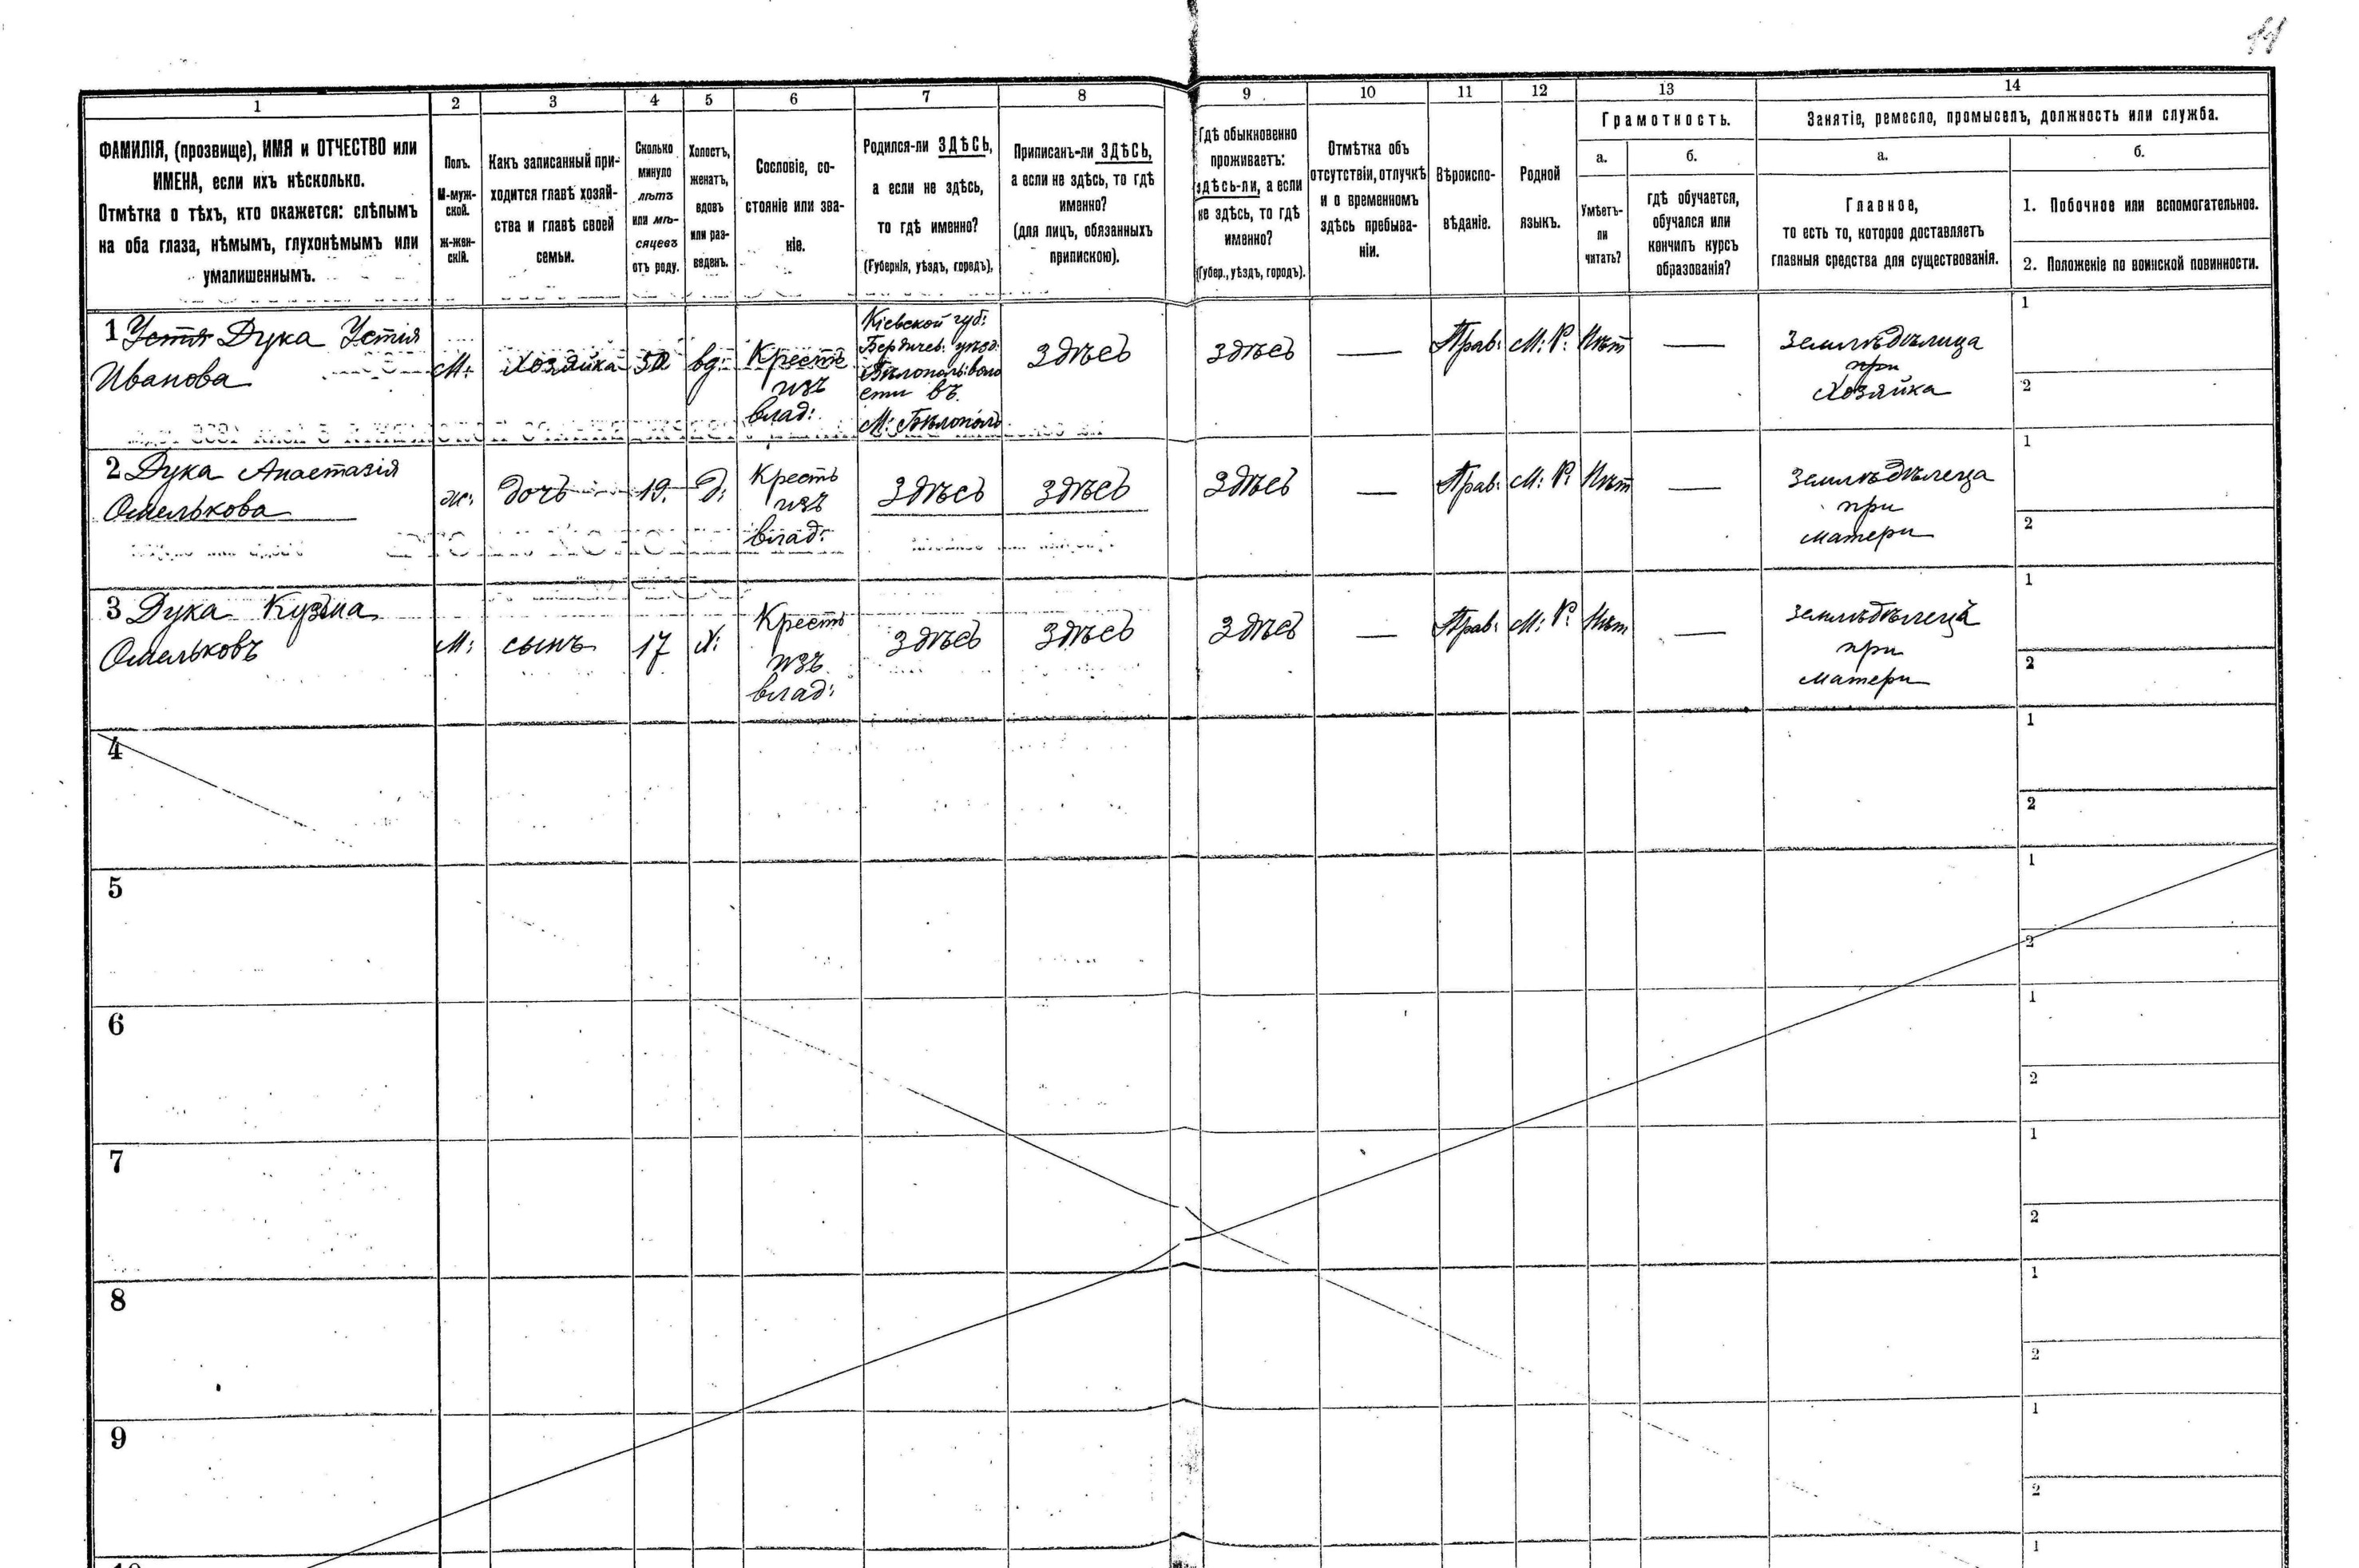 1
2
3
4
5
6
7
8
9
10
11
12
13
14
ФАМИЛІЯ, (прозвище), ИМЯ и ОТЧЕСТВО или
ИМЕНА, если ихъ нѣсколько.
Отмѣтка о тѣхъ, кто окажется: слѣпымъ
на оба глаза, нѣмымъ, глухонѣмымъ или
умалишеннымъ.
Полъ.
М-муж-
ской.
Ж-жен-
скій.
Какъ записанный при-
ходится главѣ хозяй-
ства и главѣ своей
семьи.
Сколько
минуло
лѣтъ
или мѣ-
сяцевъ
отъ роду.
Холостъ,
женатъ,
вдовъ
или раз-
веденъ.
Сословіе, со-
стояніе или зва-
ніе.
Родился-ли ЗДѢСЬ,
а если не здѣсь,
то гдѣ именно?
(Губернія, уѣздъ, городъ),
Приписанъ-ли ЗДѢСЬ,
а если не здѣсь, то гдѣ
именно?
(для лицъ, обязанныхъ
припискою).
Гдѣ обыкновенно
проживаетъ:
здѣсь-ли, а если
не здѣсь, то гдѣ
именно?
(Губер., уѣздъ, городъ).
Отмѣтка объ
отсутствіи, отлучкѣ
и о временномъ
здѣсь пребыва-
ніи.
Вѣроиспо-
вѣданіе.
Родной
языкъ.
Грамотность.
а.
Умѣетъ-
ли
читать?
б.
гдѣ обучается,
обучался или
кончилъ курсъ
образованія?
Занятіе, ремесло, промыселъ, должность или служба.
а.
Главное,
то есть то, которое доставляетъ
главныя средства для существованія.
б.
1. Побочное или вспомогательное.
2. Положеніе по воинской повинности.
1 Устя Дука Устія
Иванова
М:
Хозяйка
50
вд:
Крестъ
изъ
влад:
Кіевской губ:
Бердичев: уѣзд:
Бѣлополь: воло
сти въ
М: Бѣлополь
здѣсь
здѣсь
—
Прав:
М: Р:
Нѣт
—
Землѣдѣлица
при
Хозяйка
1
2
2 Дука Анастазія
Омелькова
ж:
дочь
19.
д:
Крестъ
изъ
влад:
здѣсь
здѣсь
здѣсь
—
Прав:
М: Р:
Нѣт
—
Землѣдѣлеца
при
матери
1
2
3 Дука Кузьма
Омельковъ
М:
сынъ
17
х:
Крестъ
изъ
влад:
здѣсь
здѣсь
здѣсь
—
Прав:
М: Р:
Нѣт
—
Землѣдѣлецъ
при
матери
1
2
4
1
2
5
1
2
6
1
2
7
1
2
8
1
2
9
1
2
1